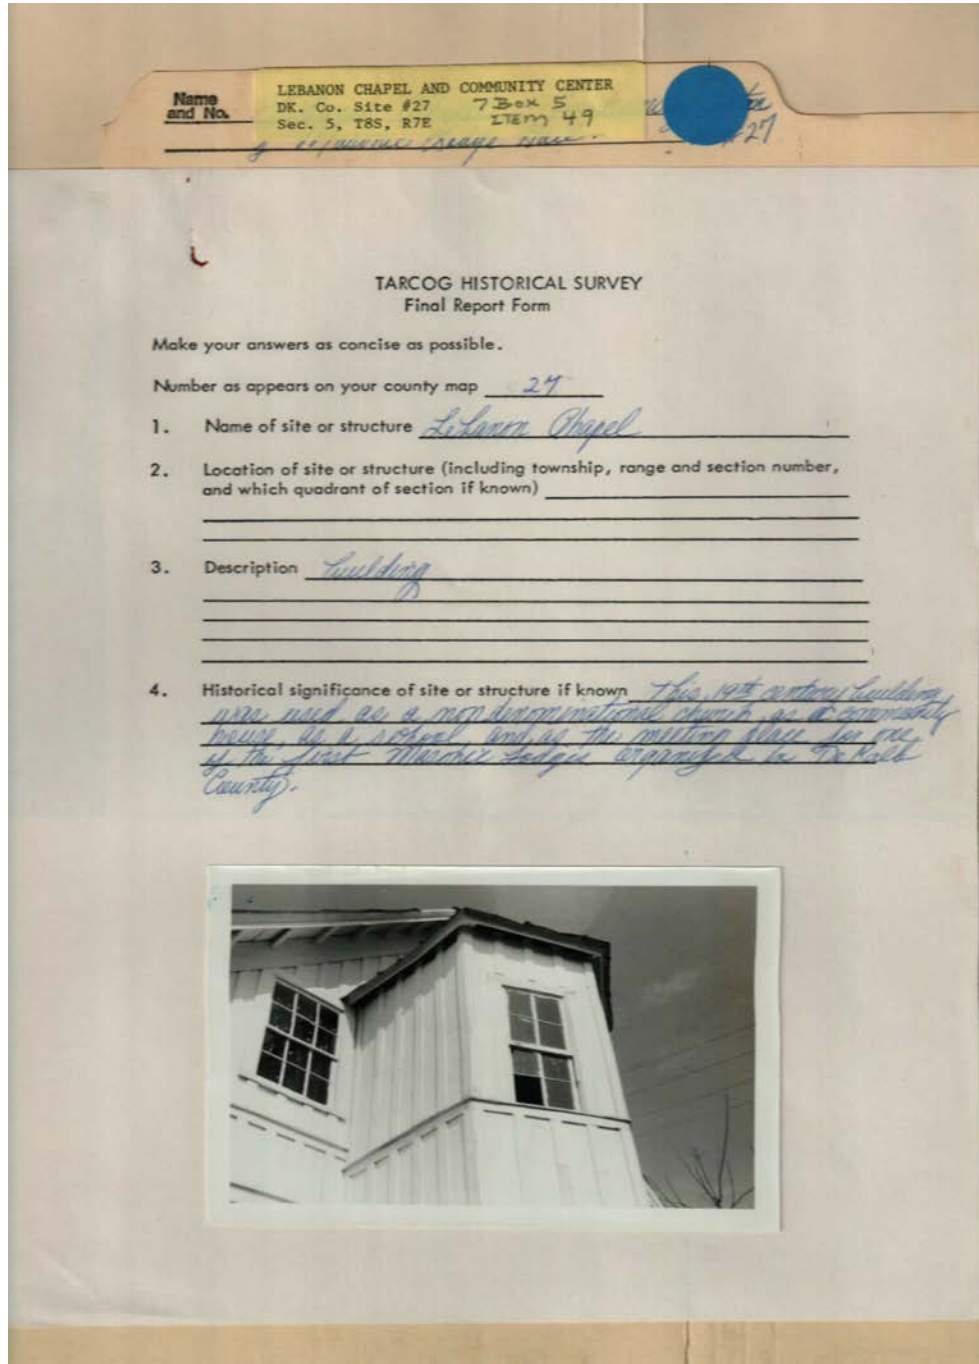 Name
and No.
LEBANON CHAPEL AND COMMUNITY CENTER
DK. Co. Site #27 7 Box 5
Sec. 5, T8S, R7E ITEM 49
27
TARCOG HISTORICAL SURVEY
Final Report Form
Make your answers as concise as possible.
Number as appears on your county map 27
1. Name of site or structure Lebanon Chapel
2. Location of site or structure (including township, range and section number,
and which quadrant of section if known)
3. Description building
4. Historical significance of site or structure if known This 19th century building
was used as a nondenominational church, as a community
house, as a school, and as the meeting place for one
of the first Masonic Lodges organized in DeKalb
County.